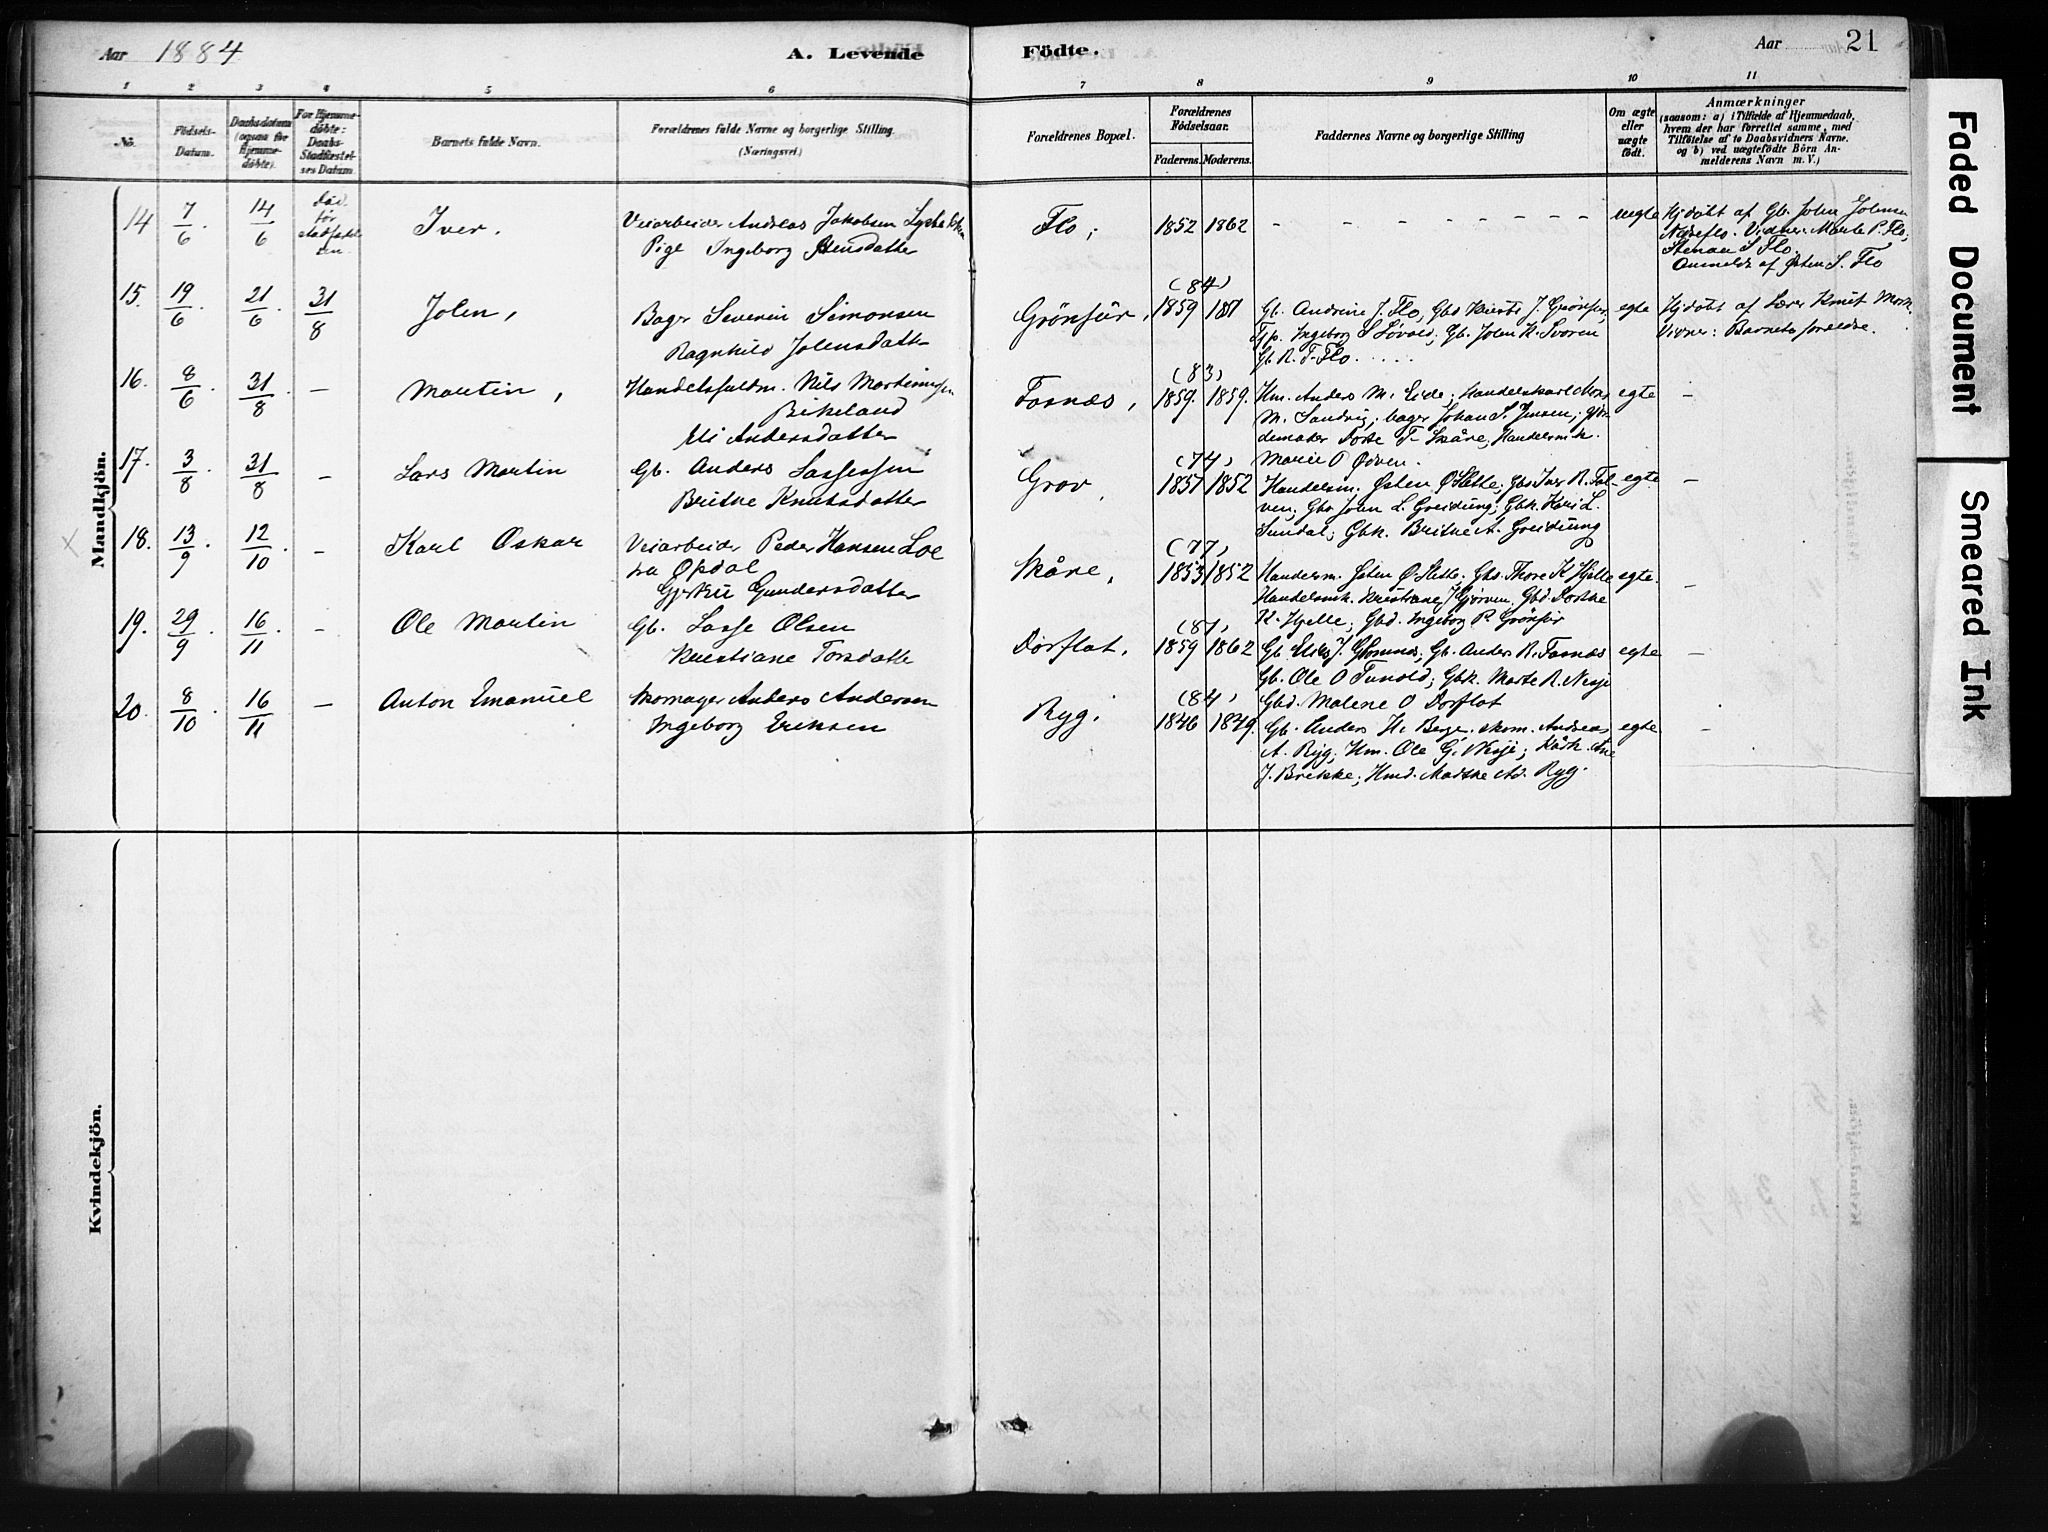 Aar 1884
A. Levende
Födte.
Aar
21
1 2 3 4 5 6 7 8 9 10 11
No.
Födsels-Datum.
Daabsdatum (ogsaa for Hjemmedöbte).
For Hjemmedöbte: Daabs-Stadfæstelses Datum.
Barnets fulde Navn.
Forældrenes fulde Navne og borgerlige Stilling.
(Næringsvei)
Forældrenes Bopæl.
Forældrenes Födselsaar.
Faderens. Moderens.
Faddernes Navne og borgerlige Stilling
Om ægte eller uægte födt.
Anmærkninger
(saasom: a) i Tilfælde af Hjemmedaab,
hvem der har forrettet samme, med
Tilföielse af to Daabsvidners Navne.
og b) ved uægtefödte Börn Anmelderens Navn m. V.)
Mandkjön.
14 7/6. 14/6 Död før Iver. Veiarbeider Andreas Jakobsen
Pige Ingeborg Stensdatter
Flo; 1852 1862 - - - - - - - uegte Hjdøbt af Gb. John Johnsen
Nedreflo. Vidner: Marte P. Flo,
Flo.
Anmeldt af Østen S. Flo
15. 19/6. 21/6. 31/8 John, Bager Severin Simonsen
Ragnhild Johnsdatter
Grønfur, (84) 1859 Gb. Andrine J. Flo, Gbs Kierti J. Grønfur, egte Hjdøbt af Lærer Knut
Tjp. Ingeborg S Løvold; Gb. John K. Svoren Vidner: Barnets foreldre.
Gb. R. T. Flo.....
16. 8/6. 31/8. – Martin, Handelsfuldm. Nils Martinussen
Birkeland
Eli Andersdatter
Fosnæs, (83) 1859. 1859. Hm. Anders M. Eide; Handelskarl Mons egte –
M. Sandvig; bager Johan S. Jensen;
T. Skåre; Handelsmk.
Marie O Ødven.
17. 3/8 31/8 – Lars Martin Gb. Anders Lassesen
Brithe Knutsdatter
Grov, (74) 1851 1852 Handelsm. Østen Ø. Hette; Gbs Iver R. Folven; egte –
Gbs John L. Greidung; Gbk. Kari L.
Sundal; Gbk. Brithe A. Greidung
18. 13/9. 12/10 – Karl Oskar Veiarbeider Peder Hansen Loe
fra Opdal
Gjertru Gundersdatter
Skåre, (77) 1853 1852 Handelsm. Østen Ø. Hette; Gbs. Thore K Hjelle egte. –
Handelsmk. Kristiane J Gjørven, Gbd.
R. Hjelle; Gbd. Ingeborg R Grønfur
19. 29/9. 16/11. – Ole Martin Gb. Lasse Olsen
Kristiane Torsdatter
Dorflot. (81) 1859 1862 Gb. Elias J. Glomnæs; Gb. Anders R. Fosnæs egte –
Gb. Ole O Tunold; Gbk. Marte R. Nesje
Gbd. Malene O Dorflot
20. 8/10. 16/11 – Anton Emanuel Skomager Anders Andersen
Ingeborg Eriksen
Ryg. (84) 1846 1849. Gb. Anders H. Berge. skom. Andreas egte –
A. Ryg; Hm. Ole G. Nesje; Ane
J. Brekke; Hmd. Madthe Ad. Ryg.
Kvindekjön.
Faded Document
Smeared Ink